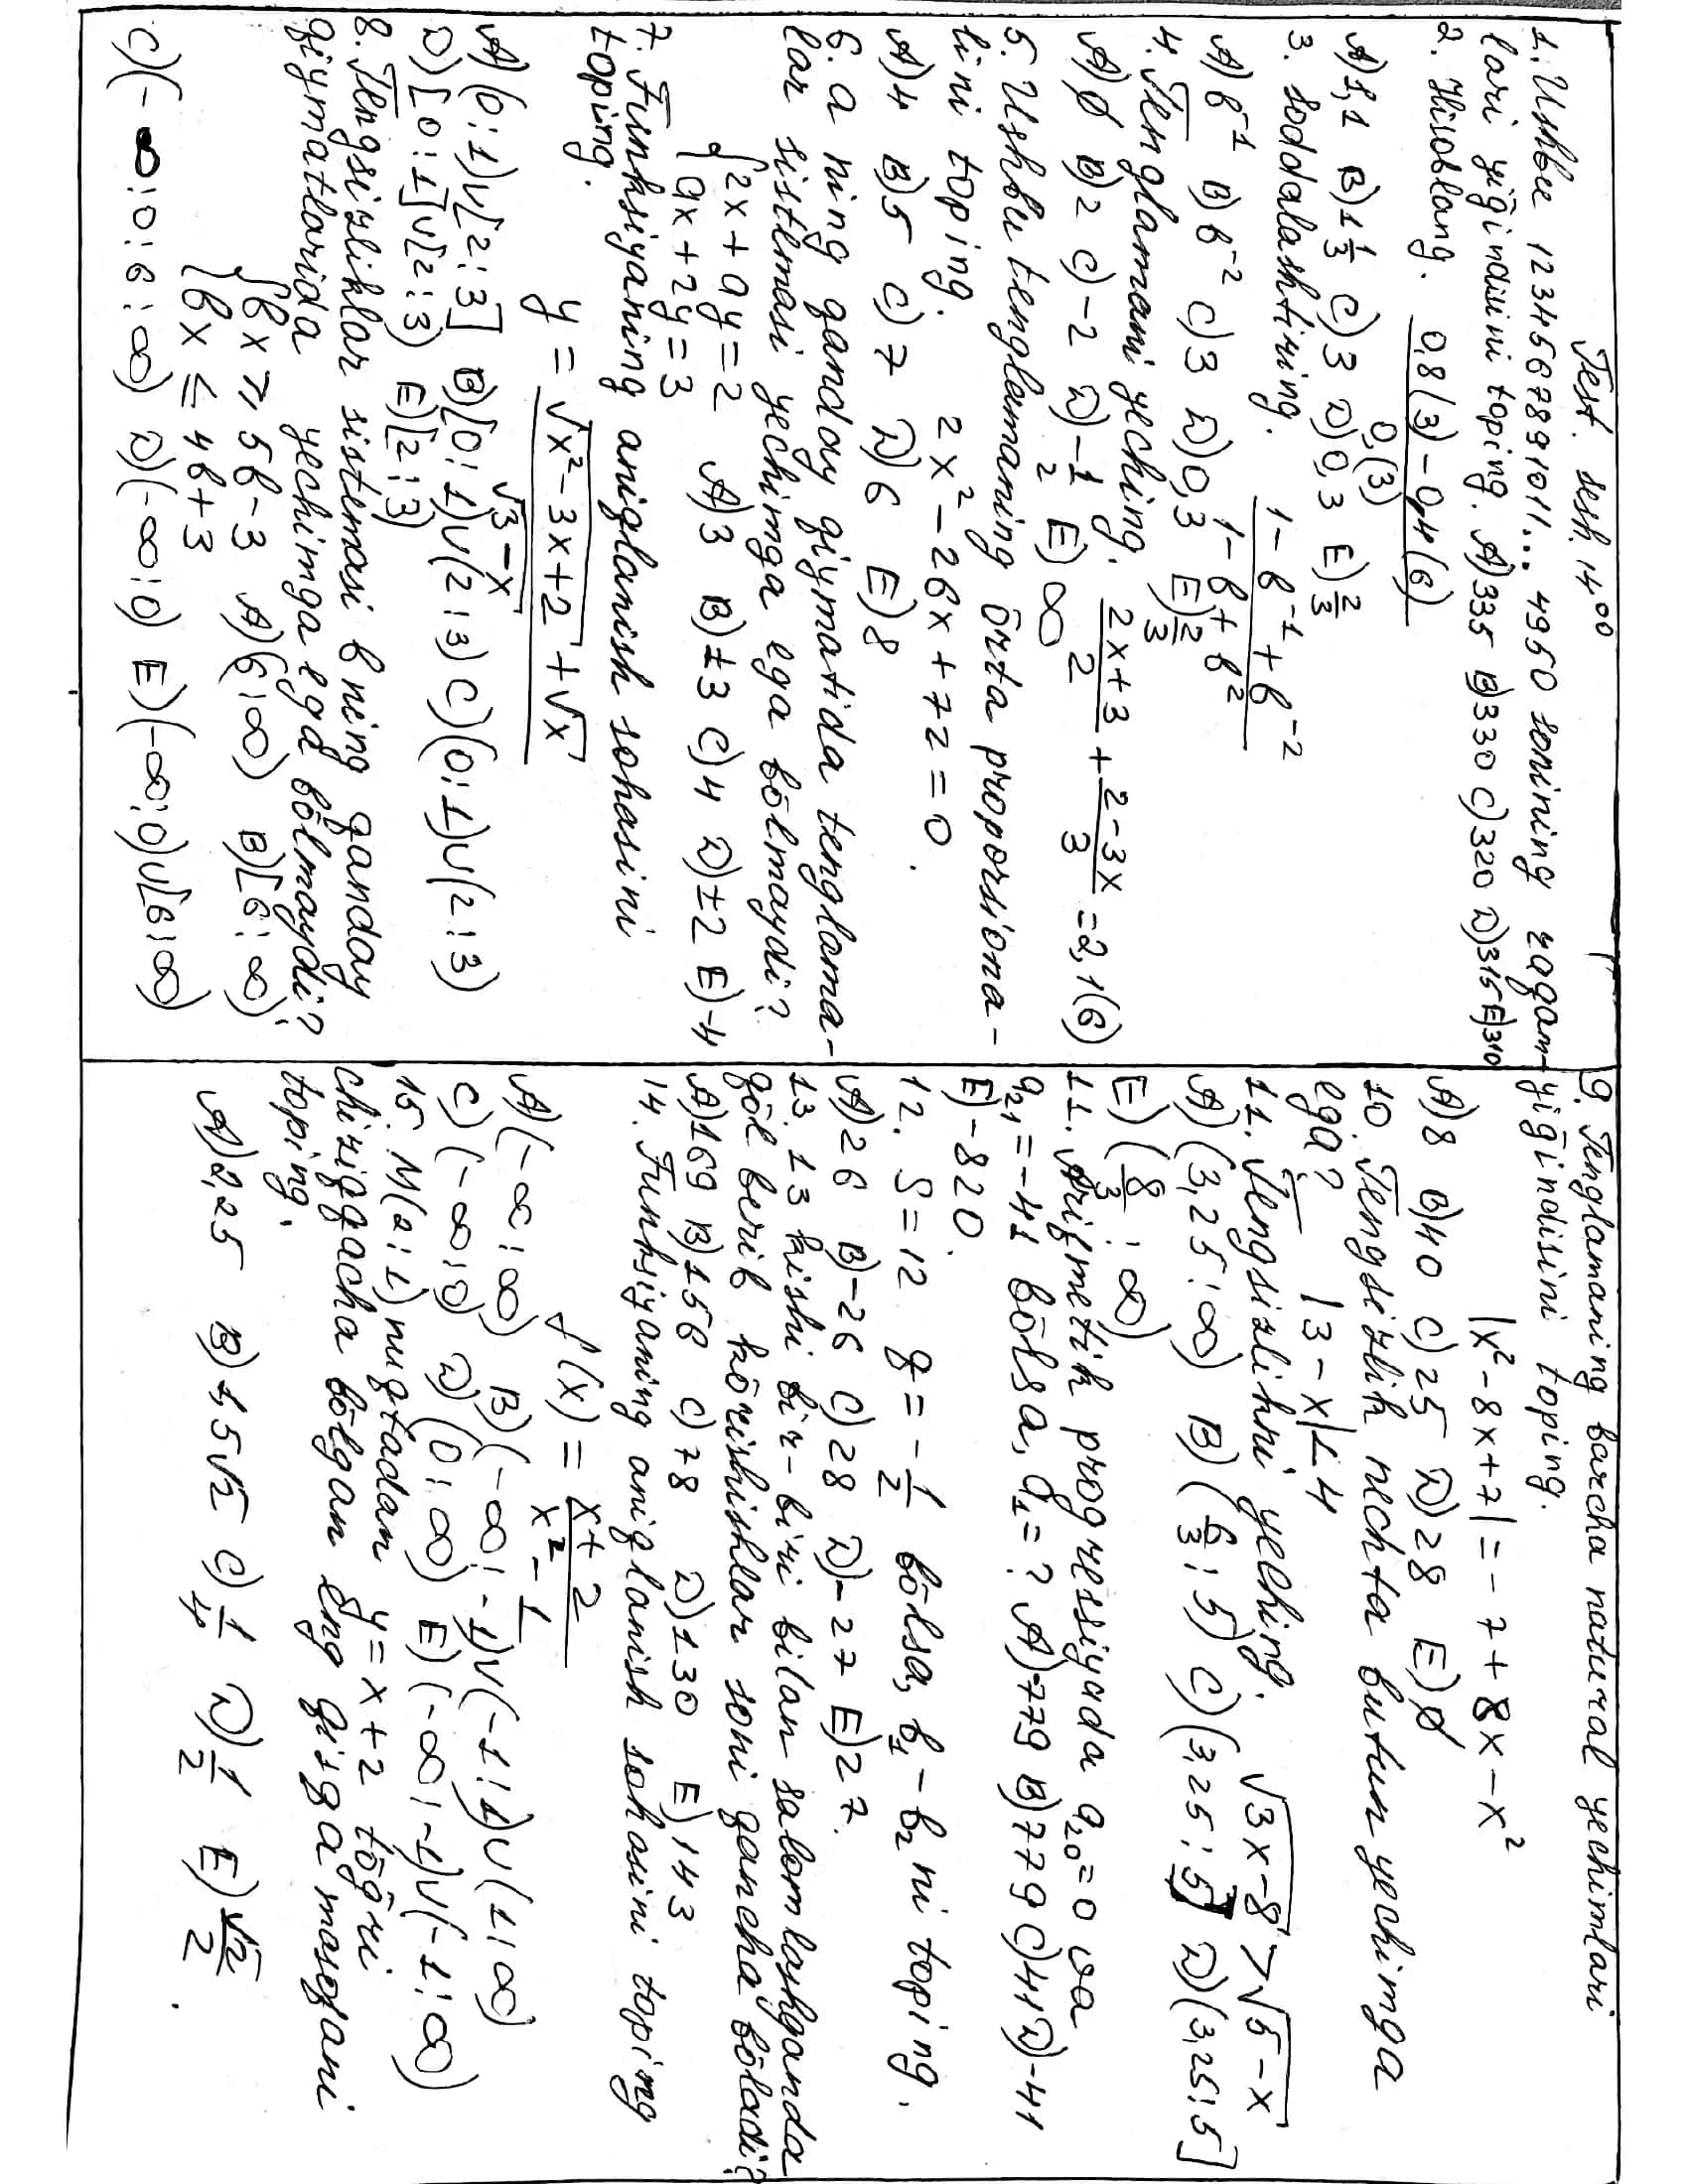 Test. sesh. 14,00
1. Ushbu 1234567891011... 4950 sonining raqam-
lari yig̃indisini toping. A)335 B)330 C)320 D)315 E)310
2. Hisoblang. 0,8(3)-0,4(6) / 0,(3)
A)1,1 B)1 1/3 C)3 D)0,3 E)2/3
3. Soddalashtiring. 1-b⁻¹+b⁻² / 1-b+b²
A)b⁻¹ B)b⁻² C)3 D)0,3 E)2/3
4. Tenglamani yeching. 2x+3/2 + 2-3x/3 = 2,1(6)
A)∅ B)2 C)-2 D)-1/2 E)∞
5. Ushbu tenglamaning õrta proporsiona-
lini toping. 2x²-26x+72=0.
A)4 B)5 C)7 D)6 E)8
6. a ning qanday qiymatida tenglama-
lar sistemasi yechimga ega bõlmaydi?
{2x+ay=2
{ax+2y=3 A)3 B)±3 C)4 D)±2 E)-4
7. Funksiyaning aniqlanish sohasini
toping.
y = √x²-3x+2 + √x / √3-x
A)(0;1)∪[2;3] B)[0;1)∪(2;3) C)(0;1)∪(2;3)
D)[0;1]∪[2;3) E)[2;3)
8. Tengsizliklar sistemasi b ning qanday
qiymatlarida yechimga ega bõlmaydi?
{bx ≥ 5b-3 A)(6;∞) B)[6;∞)
{bx ≤ 4b+3
C)(-∞;0;6;∞) D)(-∞;0) E)(-∞;0)∪[6;∞)
9. Tenglamaning barcha natural yechimlari
yig̃indisini toping.
|x²-8x+7|=-7+8x-x²
A)8 B)40 C)25 D)28 E)∅
10. Tengsizlik nechta butun yechimga
ega? |3-x|<4
11. Tengsizlikni yeching. √3x-8 > √5-x
A)(3,25;∞) B)(6/3;5) C)(3,25;5] D)(3,25;5]
E)(8/3;∞)
11. Arifmetik progressiyada a₂₀=0 va
a₂₁=-41 bõlsa, a₁=? A)-779 B)779 C)41 D)-41
E)-820.
12. S=12 q=-1/2 bõlsa, b₁-b₂ ni toping.
A)26 B)-26 C)28 D)-27 E)27.
13. 13 kishi bir-biri bilan salomlashganda
qõl berib kõrishishlar soni qancha bõladi?
A)169 B)156 C)78 D)130 E)143
14. Funksiyaning aniqlanish sohasini toping
f(x) = x+2 / x²-1
A)(-∞;∞) B)(-∞;-1)∪(-1;1)∪(1;∞)
C)(-∞;0) D)(0;∞) E)(-∞;-1)∪(-1;∞)
15. M(2;1) nuqtadan y=x+2 tõg̃ri
chiziqqacha bõlgan eng qisqa masofani
toping.
A)2,25 B)1,5√2 C)1/4 D)1/2 E)√2/2.